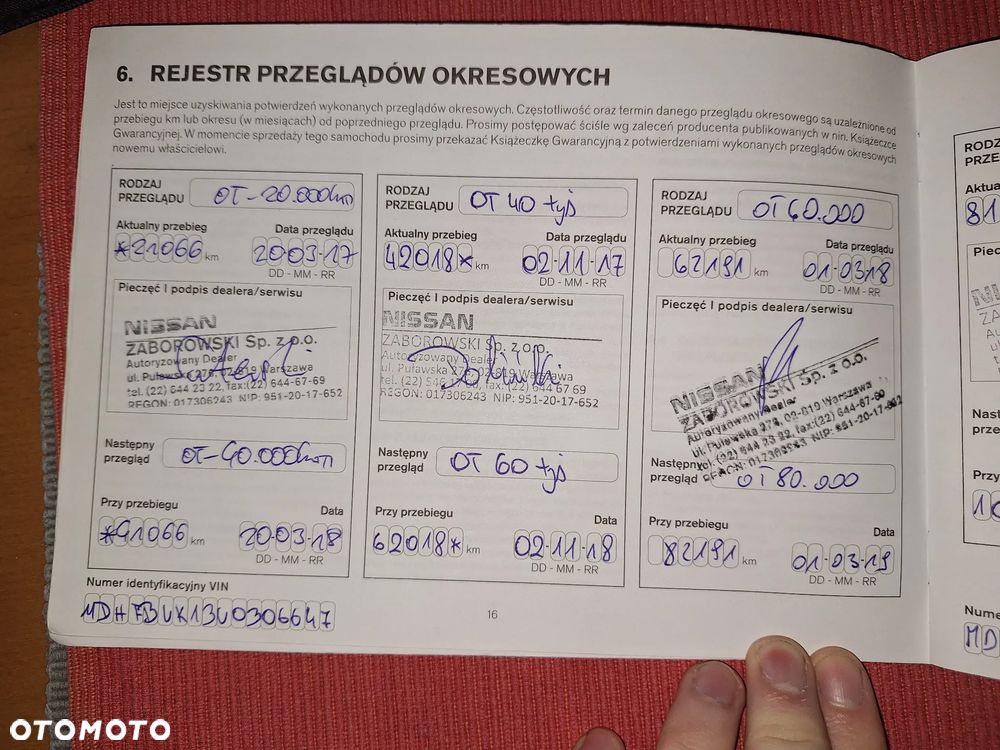 6. REJESTR PRZEGLĄDÓW OKRESOWYCH
Jest to miejsce uzyskiwania potwierdzeń wykonanych przeglądów okresowych. Częstotliwość oraz termin danego przeglądu okresowego są uzależnione od
przebiegu km lub okresu (w miesiącach) od poprzedniego przeglądu. Prosimy postępować ściśle wg zaleceń producenta publikowanych w nin. Książeczce
Gwarancyjnej. W momencie sprzedaży tego samochodu prosimy przekazać Książeczkę Gwarancyjną z potwierdzeniami wykonanych przeglądów okresowych
nowemu właścicielowi.
RODZAJ
PRZEGLĄDU OT-20.000km
Aktualny przebieg Data przeglądu
*21066 km 20-03-17
DD - MM - RR
Pieczęć I podpis dealera/serwisu
NISSAN
ZABOROWSKI Sp. z o.o.
Autoryzowany Dealer
ul. Puławska 278, Warszawa
tel. (22) 644 23 22, fax:(22) 644-67-69
REGON: 017306243 NIP: 951-20-17-652
Następny
przegląd OT-40.000km
Przy przebiegu Data
*41066 km 20-03-18
DD - MM - RR
RODZAJ
PRZEGLĄDU OT 40 tyś
Aktualny przebieg Data przeglądu
42018* km 02-11-17
DD - MM - RR
Pieczęć I podpis dealera/serwisu
NISSAN
ZABOROWSKI Sp. z o.o.
Autoryzowany Dealer
ul. Puławska 02-819 Warszawa
tel. (22) 644 23 22, fax:(22) 644 67 69
REGON: 017306243 NIP: 951-20-17-652
Następny
przegląd OT 60 tyś
Przy przebiegu Data
62018* km 02-11-18
DD - MM - RR
RODZAJ
PRZEGLĄDU OT 60.000
Aktualny przebieg Data przeglądu
62191 km 01-03-18
DD - MM - RR
Pieczęć I podpis dealera/serwisu
NISSAN
ZABOROWSKI Sp. z o.o.
Autoryzowany Dealer
ul. Puławska 278, 02-819 Warszawa
tel. (22) 644 23 22, fax:(22) 644-67-69
REGON: 017306243 NIP: 951-20-17-652
Następny
przegląd OT 80.000
Przy przebiegu Data
82191 km 01-03-19
DD - MM - RR
Numer identyfikacyjny VIN
MDHFBUK13U0306647
16
RODZ
PRZE
Aktua
81
Piec
Nast
prze
Przy
10
Nume
MD
OTOMOTO